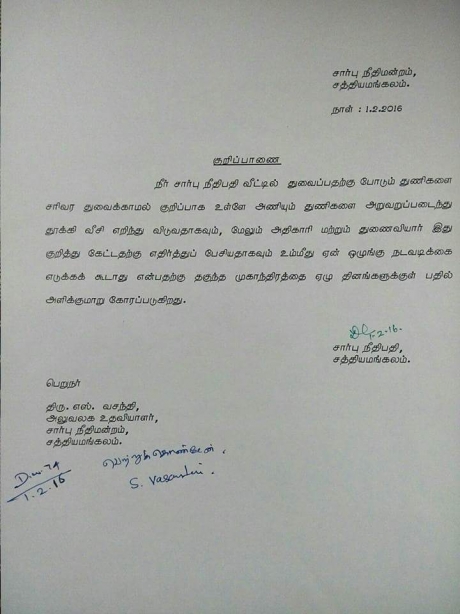 சார்பு நீதிமன்றம்,
சத்தியமங்கலம்.
நாள் : 1.2.2016
குறிப்பாணை
நீர் சார்பு நீதிபதி வீட்டில் துவைப்பதற்கு போடும் துணிகளை
சரிவர துவைக்காமல் குறிப்பாக உள்ளே அணியும் துணிகளை அறுவறுப்படைந்து
தூக்கி வீசி எறிந்து விடுவதாகவும், மேலும் அதிகாரி மற்றும் துணைவியார் இது
குறித்து கேட்டதற்கு எதிர்த்துப் பேசியதாகவும் உம்மீது ஏன் ஒழுங்கு நடவடிக்கை
எடுக்கக் கூடாது என்பதற்கு தகுந்த முகாந்திரத்தை ஏழு தினங்களுக்குள் பதில்
அளிக்குமாறு கோரப்படுகிறது.
1.2.16.
சார்பு நீதிபதி,
சத்தியமங்கலம்.
பெறுநர்
திரு. எஸ். வசந்தி,
அலுவலக உதவியாளர்,
சார்பு நீதிமன்றம்,
சத்தியமங்கலம்.
பெற்றுக்கொண்டேன்.
S. Vasanthi.
1.2.16